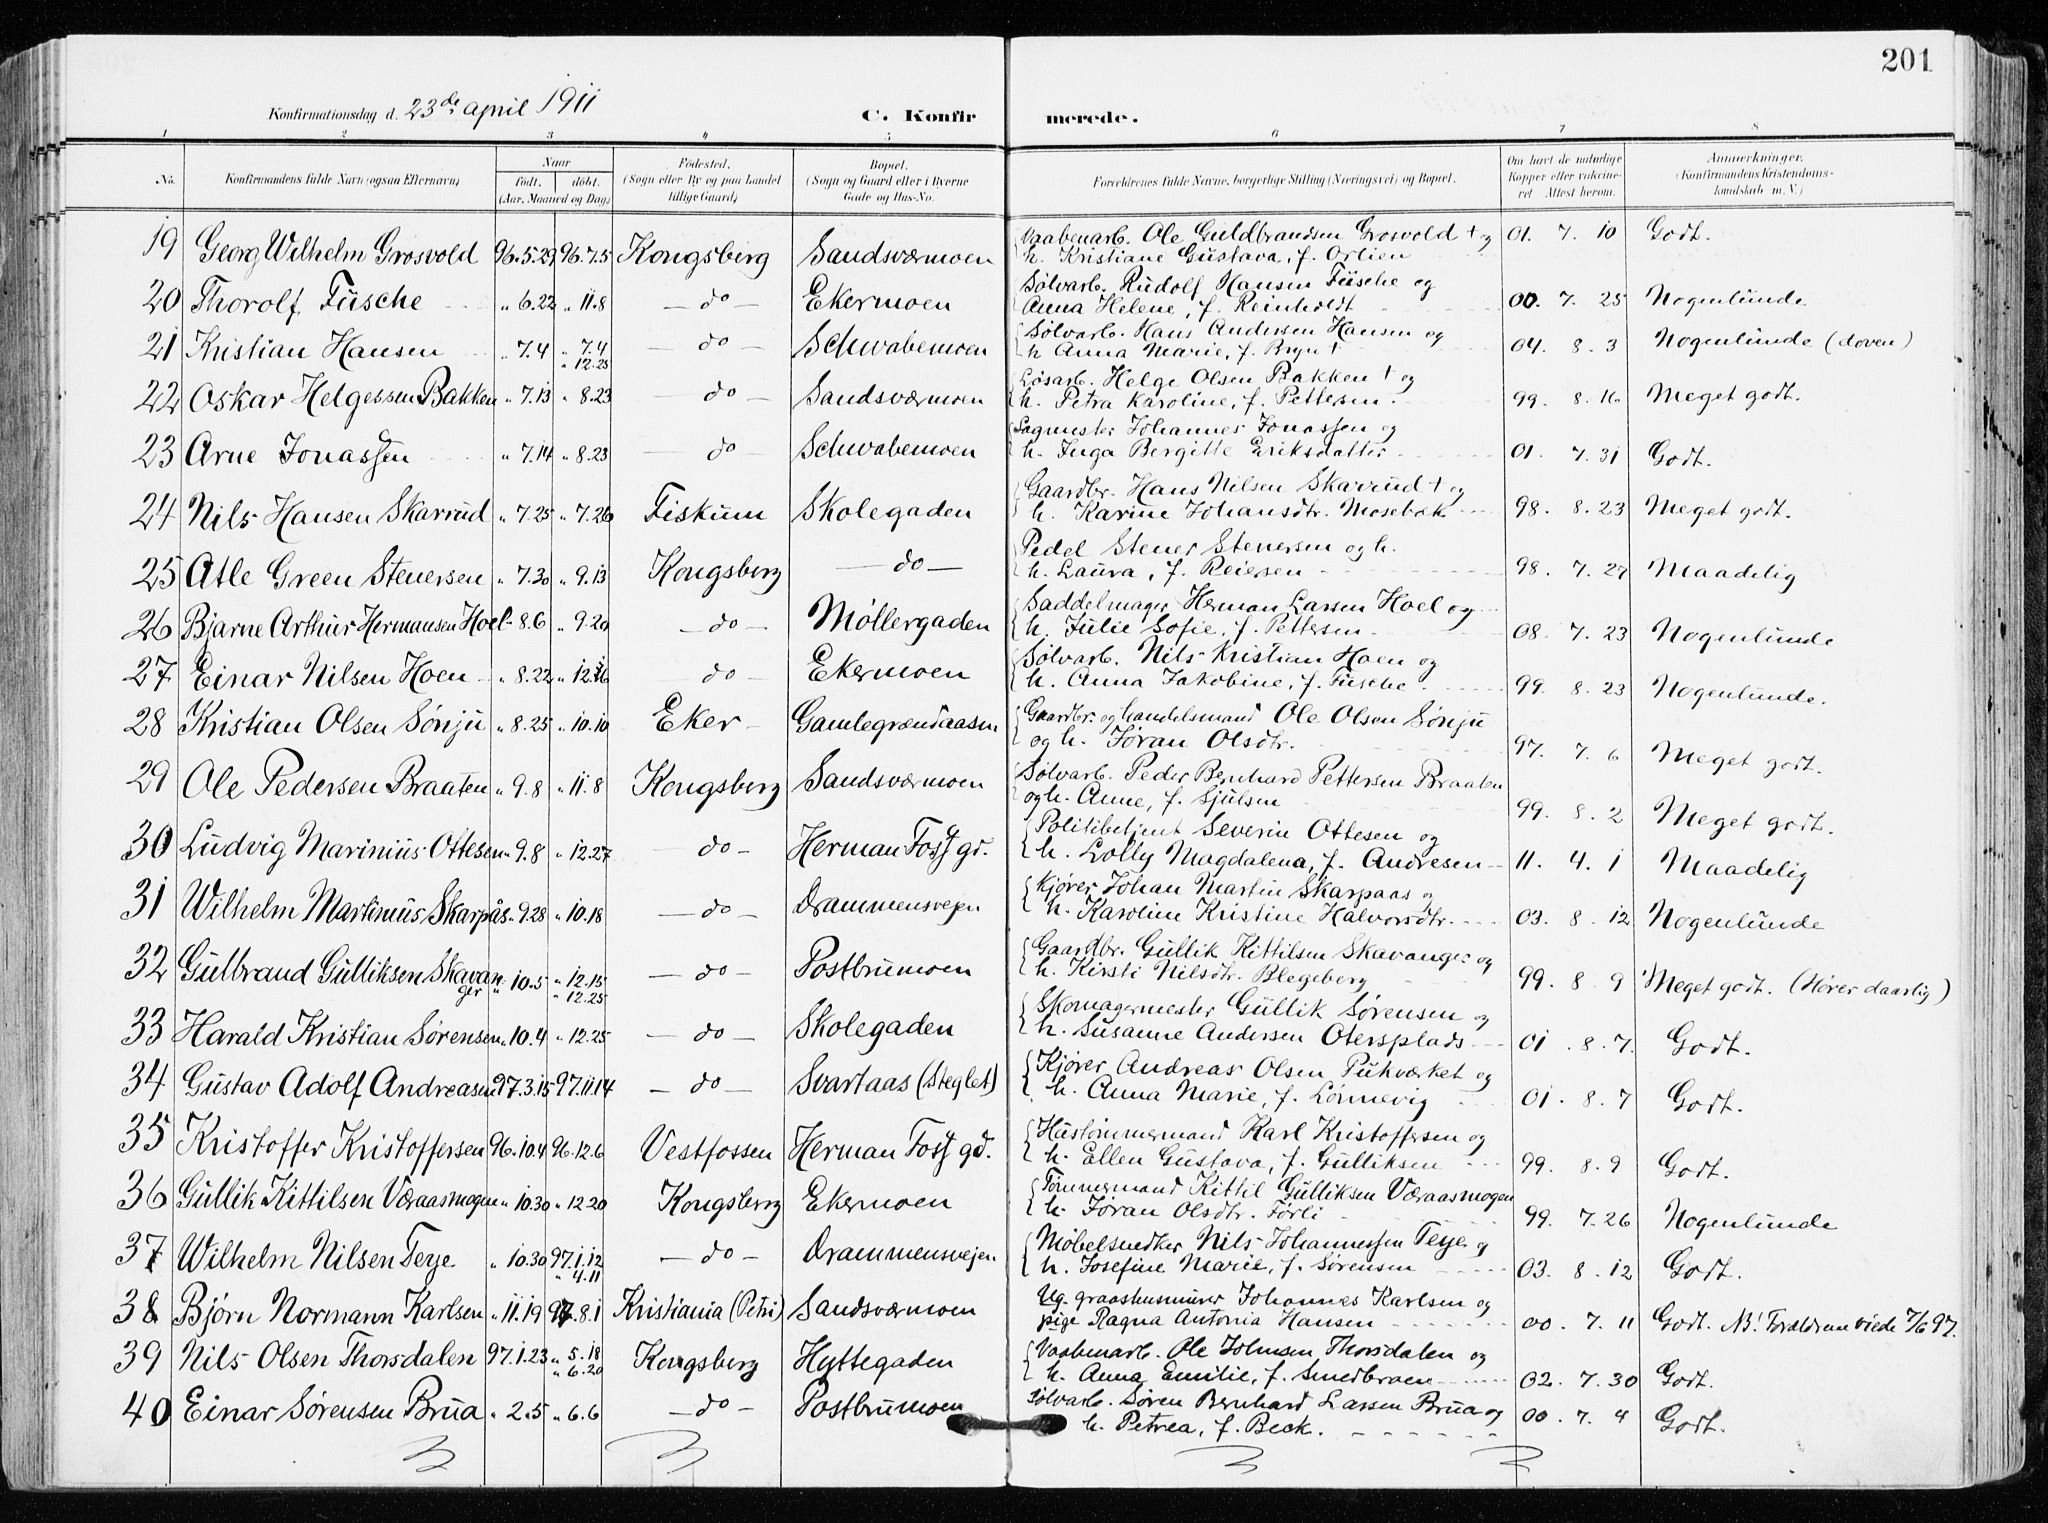 201
Konfirmationsdag d. 23de april 1911
C. Konfirmerede.
1 2 3 4 5 6 7 8
No. Konfirmandens fulde Navn (ogsaa Efternavn) Naar født. døbt. (Aar, Maaned og Dag) Fødested. (Sogn eller By og paa Landet tillige Gaard) Bopæl. (Sogn og Gaard eller i Byerne Gade og Hus-No. Forældrenes fulde Navne, borgerlige Stilling (Næringsvei) og Bopæl. Om havt de naturlige Kopper eller vaccineret Attest herom. Anmerkninger. (Konfirmandens Kristendomskundskab m. V.)
19 Georg Wilhelm Grosvold 96.5.29 96.7.5 Kongsberg Sandsværmoen Vaabenarb. Ole Guldbrandsen Grosvold + og 01. 7. 10 Godt.
h. Kristiane Gustava, f. Orlien
20 Thorolf Füsche " 6.22 " 11.8 — do — Ekermoen Sølvarb. Rudolf Hansen Füsche og
Anna Helene, f. Reinholdt 00. 7. 25 Nogenlunde
21 Kristian Hansen " 7.4 " 7.4 — do — Schwabemoen Sølvarb. Hans Andersen Hansen og
" 12.25 h Anna Marie, f. Bryn + 04. 8. 3 Nogenlunde (doven)
22 Oskar Helgessen Bakken " 7.13 " 8.23 — do — Sandsværmoen Løsarb. Helge Olsen Bakken + og
h. Petra Karoline, f. Pettersen. 99. 8. 16 Meget godt.
23 Arne Jonassen " 7.14 " 8.23 — do — Schwabemoen Sagmester Johannes Jonassen og
h. Inga Bergitte Eriksdatter 01. 7. 31 Godt.
24 Nils Hansen Skarrud " 7.25 " 7.26 Fiskum Skolegaden Gaardbr. Hans Nilsen Skarrud + og
h. Karine Johansdtr. Mosebæk 98. 8. 23 Meget godt.
25 Atle Green Stenersen " 7.30 " 9.13 Kongsberg — do — Pedel Stener Stenersen og h.
h. Laura, f. Reiersen 98. 7. 27 Maadelig
26 Bjarne Arthur Hermansen Hoel " 8.6 " 9.20 — do — Møllergaden Saddelmager Herman Larsen Hoel og
h. Julie Sofie, f. Pettersen 08. 7. 23 Nogenlunde
27 Einar Nilsen Hoen " 8.22 " 12.26 — do — Ekermoen Sølvarb. Nils Kristian Hoen og
h. Anna Jakobine, f. Füsche. 99. 8. 23 Nogenlunde.
28 Kristian Olsen Sønju " 8.25 " 10.10 Eker Gamlegrændaasen Gaardbr. og handelsmand Ole Olsen Sønju
og h. Jøran Olsdtr. 97. 7. 6 Meget godt.
29 Ole Pedersen Braaten " 9.8 " 11.8 Kongsberg Sandsværmoen Sølvarb. Peder Bernhard Pettersen Braaten
og h. Anne, f. Sjulsen 99. 8. 2 Meget godt.
30 Ludvig Marinius Ottesen " 9.8 " 12.27 — do — Herman Foss gd. Politibetjent Severin Ottesen og
h. Lolly Magdalena, f. Andresen 11. 4. 1 Maadelig
31 Wilhelm Martinius Skarpås " 9.28 " 10.18 — do — Drammensvejen Kjører Johan Martin Skarpaas og
h. Karoline Kristine Halvorsdtr. 03. 8. 12 Nogenlunde
32 Gulbrand Gulliksen Skavanger " 10.5 " 12.15 — do — Postbrumoen Gaardbr. Gullik Kittilsen Skavanger og
" 12.25 h. Kirsti Nilsdtr. Blegeberg 99. 8. 9 Meget godt. (Hører daarlig)
33 Harald Kristian Sørensen " 10.4 " 12.25 — do — Skolegaden Skomagermester Gullik Sørensen og
h. Susanne Andersen Otersplads 01. 8. 7. Godt.
34 Gustav Adolf Andreasen 97.3.15 97.11.14 — do — Svartaas (Steglet) Kjører Andreas Olsen Pukværket og
h. Anna Marie, f. Lønnevig 01. 8. 7 Godt.
35 Kristoffer Kristoffersen 96.10.4 96.12.6 Vestfossen Herman Foss gd. Hustømmermand Karl Kristoffersen og
h. Ellen Gustava, f. Gulliksen 99. 8. 9 Godt.
36 Gullik Kittilsen Væraasmogen " 10.30 " 12.20 Kongsberg Ekermoen Tømmermand Kittil Gulliksen Væraasmogen
h. Jøran Olsdtr. Førli 99. 7. 26 Nogenlunde
37 Wilhelm Nilsen Teye " 10.30 97.1.12 — do — Drammensvejen Møbelsnedker Nils Johannessen Teye og
" 4.11 h. Josefine Marie, f. Sørensen 03. 8. 12 Godt.
38 Bjørn Normann Karlsen " 11.19 97.8.1 Kristiania (Petri) Sandsværmoen Ug. graashusmurer Johannes Karlsen og
pige Ragna Antonia Hansen 00. 7. 11 Godt. NB! Forældrene viede 7/6 97.
39 Nils Olsen Thorsdalen 97.1.23 " 5.18 Kongsberg Hyttegaden Vaabenarb. Ole Johnsen Thorsdalen og
" 6.20 h. Anna Emilie, f. Smedbraen 02. 7. 30 Godt.
40 Einar Sørensen Brua " 2.5 " 6.6 — do — Postbrumoen Sølvarb. Søren Bernhard Larsen Brua og
h. Petrea, f. Beck. 00. 7. 4 Godt.